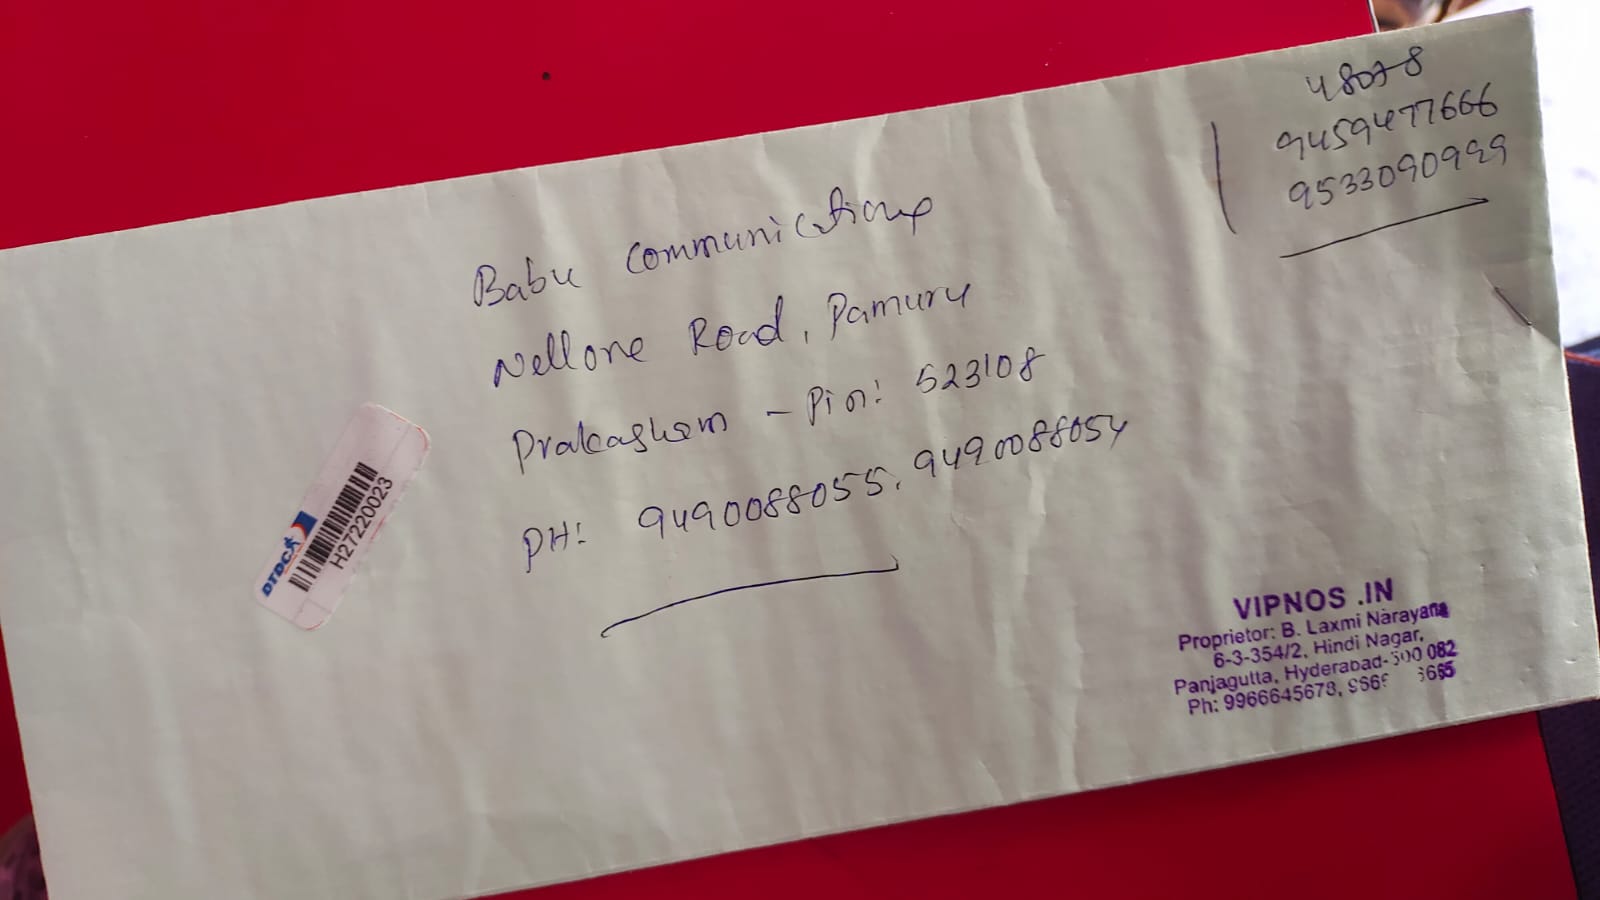 48078
9459477666
9533090999
Babu Communications
Nellore Road, Pamuru
Prakasham - Pin: 523108
PH: 9490088055, 9490088054
DTDC
H27220023
VIPNOS .IN
Proprietor: B. Laxmi Narayana
6-3-354/2, Hindi Nagar,
Panjagutta, Hyderabad-500 082
Ph: 9966645678,